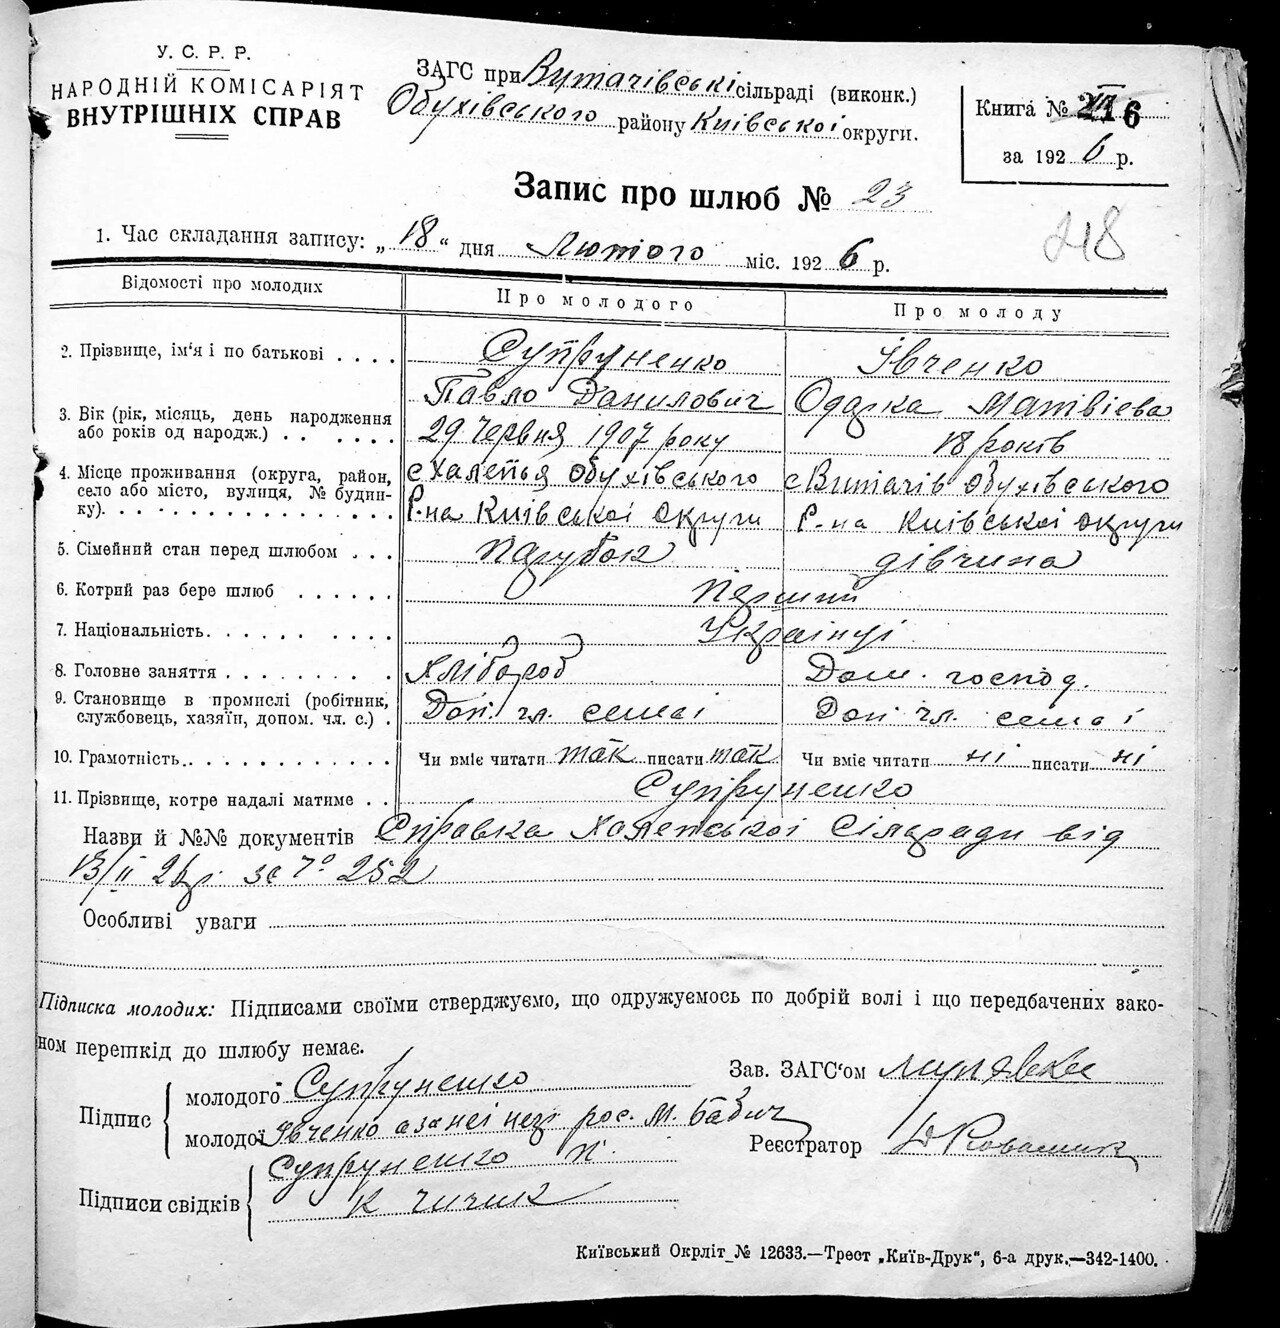 У. С. Р. Р.
НАРОДНІЙ КОМІСАРІЯТ
ВНУТРІШНІХ СПРАВ
ЗАГС при Витачівські сільраді (виконк.)
Обухівського району Київської округи.
Книга № 6
за 1926 р.
Запис про шлюб № 23
218
1. Час складання запису: „18“ дня Лютого міс. 1926 р.
Відомості про молодих
Про молодого
Про молоду
2. Прізвище, ім‘я і по батькові . . . .
Супруненко
Івченко
Павло Данилович
Одарка Матвієва
3. Вік (рік, місяць, день народження
або років од народж.) . . . . . .
29 Червня 1907 року
18 років
4. Місце проживання (округа, район,
село або місто, вулиця, № будин-
ку). . . . . . . . . . . . . . . .
с Халепья Обухівського
с Витачів Обухівського
Р-на Київської Округи
Р-на Київської округи
5. Сімейний стан перед шлюбом . . .
Парубок
дівчина
6. Котрий раз бере шлюб . . . . . .
Перший
7. Національність. . . . . . . . . .
Українці
8. Головне заняття . . . . . . . . .
Хлібороб
Дом. господ.
9. Становище в промислі (робітник,
службовець, хазяїн, допом. чл. с.) .
Доп. чл. семаї
Доп чл. семаї
10. Грамотність. . . . . . . . . . . .
Чи вміє читати так писати так
Чи вміє читати ні писати ні
11. Прізвище, котре надалі матиме . .
Супруненко
Назви й №№ документів Справка Халепської Сілради від
13/II 26р. за № 252
Особливі уваги
Підписка молодих: Підписами своїми стверджуємо, що одружуємось по добрій волі і що передбачених зако-
ном перешкід до шлюбу немає.
Підпис
молодого Супруненко
молодої Івченко а за неї рос. М. Бабич
Підписи свідків
Супруненко П.
К Чичик
Зав. ЗАГС‘ом
Реєстратор
Київський Окрліт № 12633.—Трест „Київ-Друк“, 6-а друк.—342-1400.